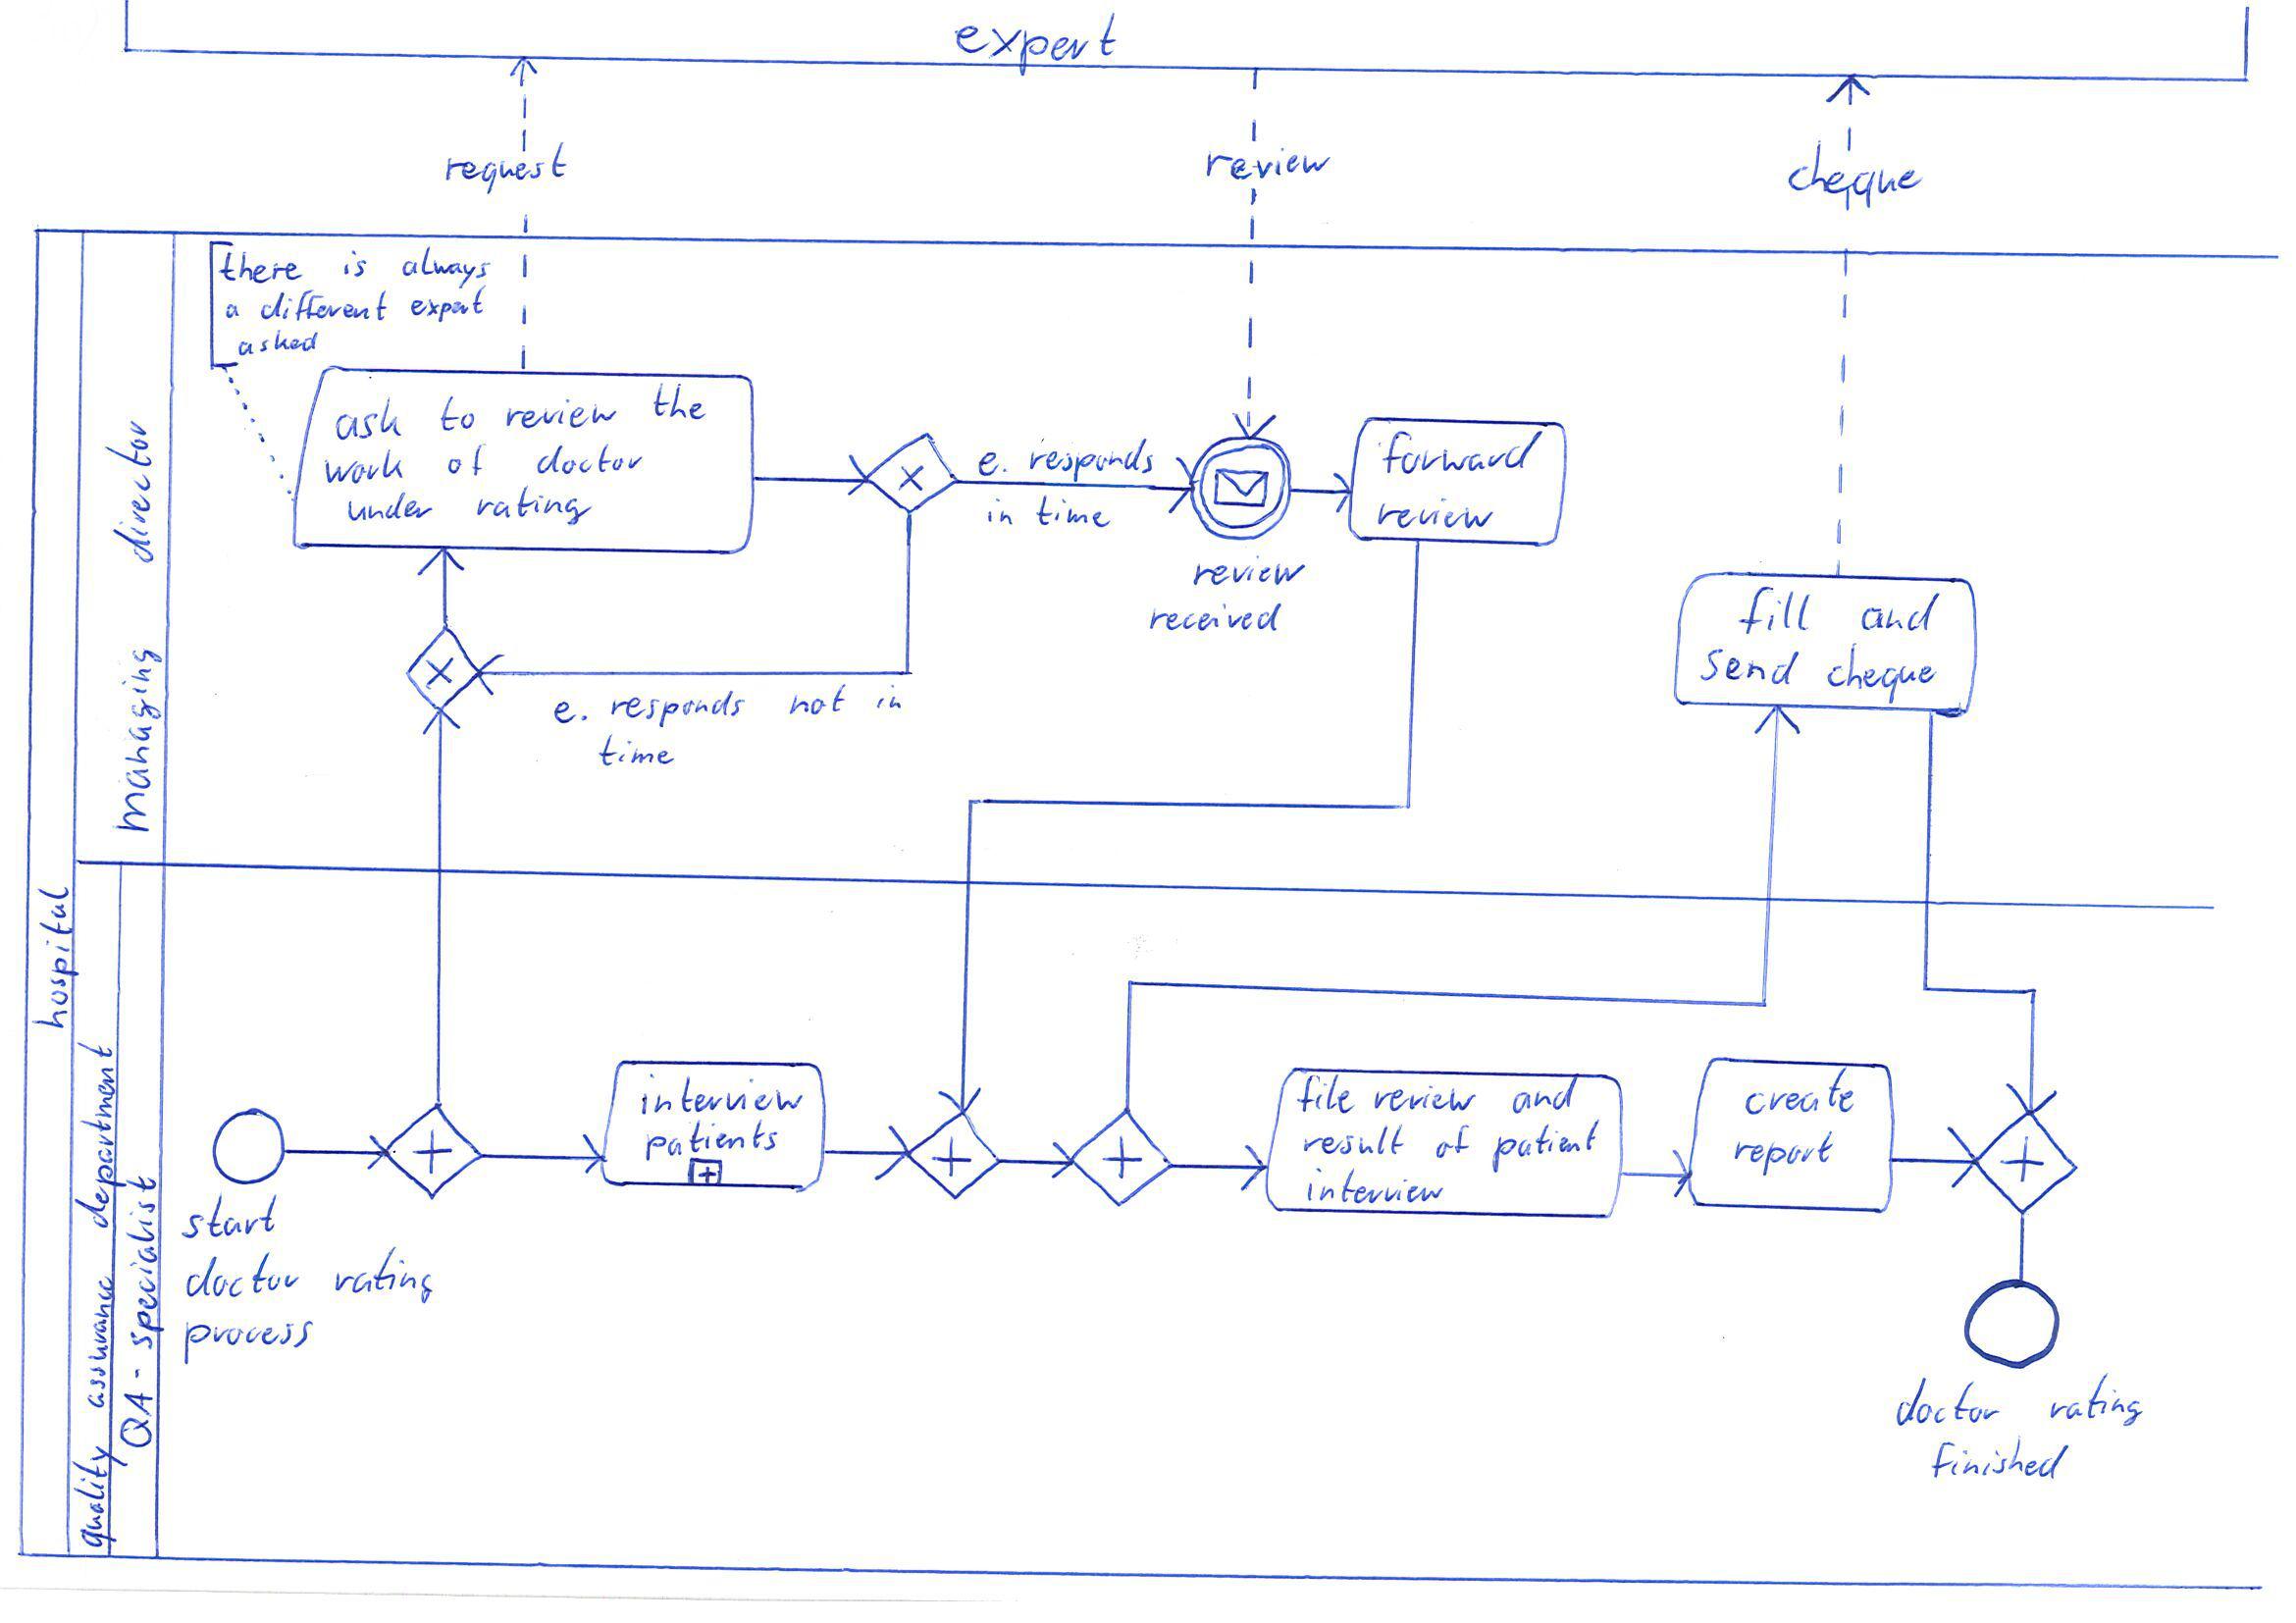 expert
request
review
cheque
there is always
a different expert
asked
ask to review the
work of doctor
under rating
e. responds
in time
review
received
forward
review
fill and
send cheque
e. responds not in
time
managing director
hospital
quality assurance department
QA-specialist
start
doctor rating
process
interview
patients
file review and
result of patient
interview
create
report
doctor rating
finished